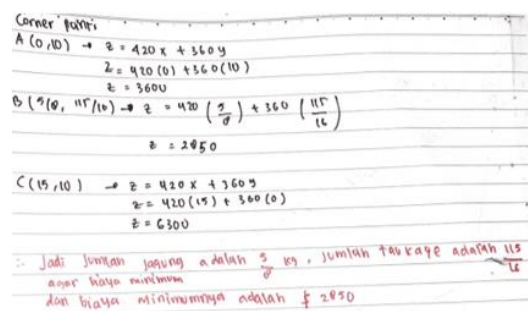 Corner points
A (0,10) → z = 420x + 360y
z = 420 (0) + 360 (10)
z = 3600
B (5/8, 115/16) → z = 420 (5/8) + 360 (115/16)
z = 2850
C (15,10) → z = 420x + 360y
z = 420 (15) + 360 (0)
z = 6300
∴ Jadi jumlah jagung adalah 5/8 kg, jumlah taukage adalah 115/16
agar biaya minimum
dan biaya minimumnya adalah £ 2850